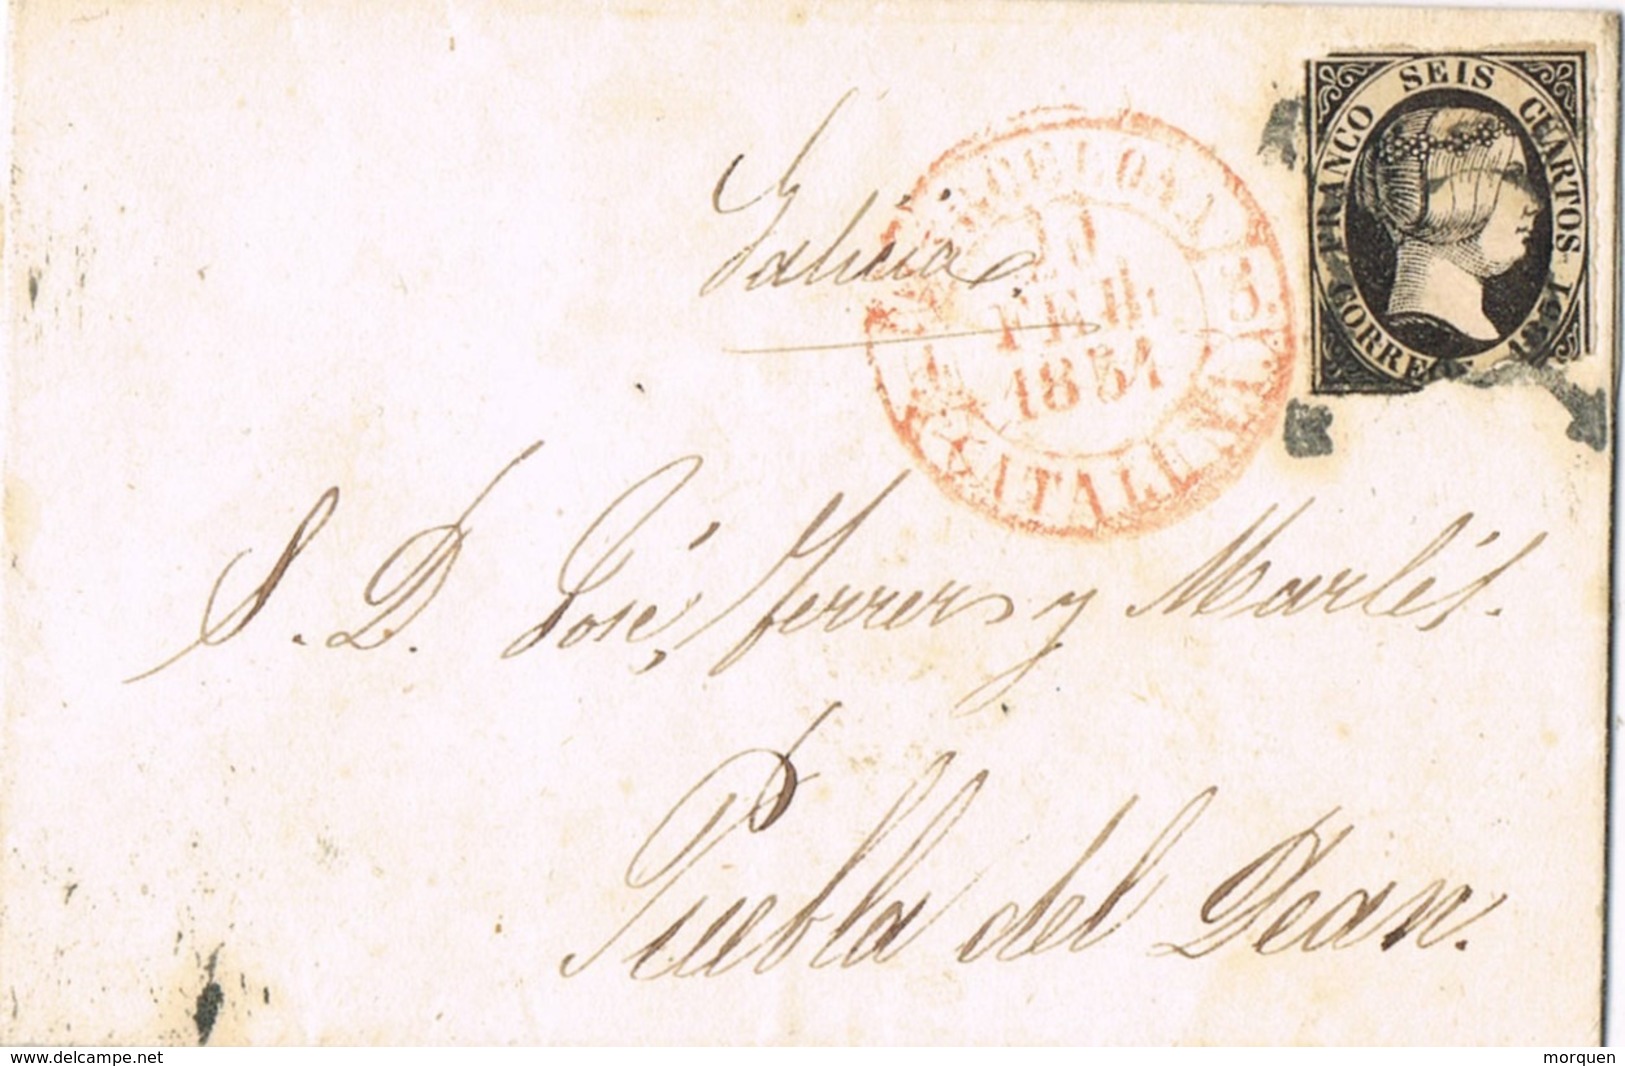 FRANCO SEIS CUARTOS 1851
CORREOS
Galicia.
BARCELONA
FEB.
1851
CATALUÑA
S. D. José Ferrer y Marlés.
Puebla del Dean.
www.delcampe.net
morquen